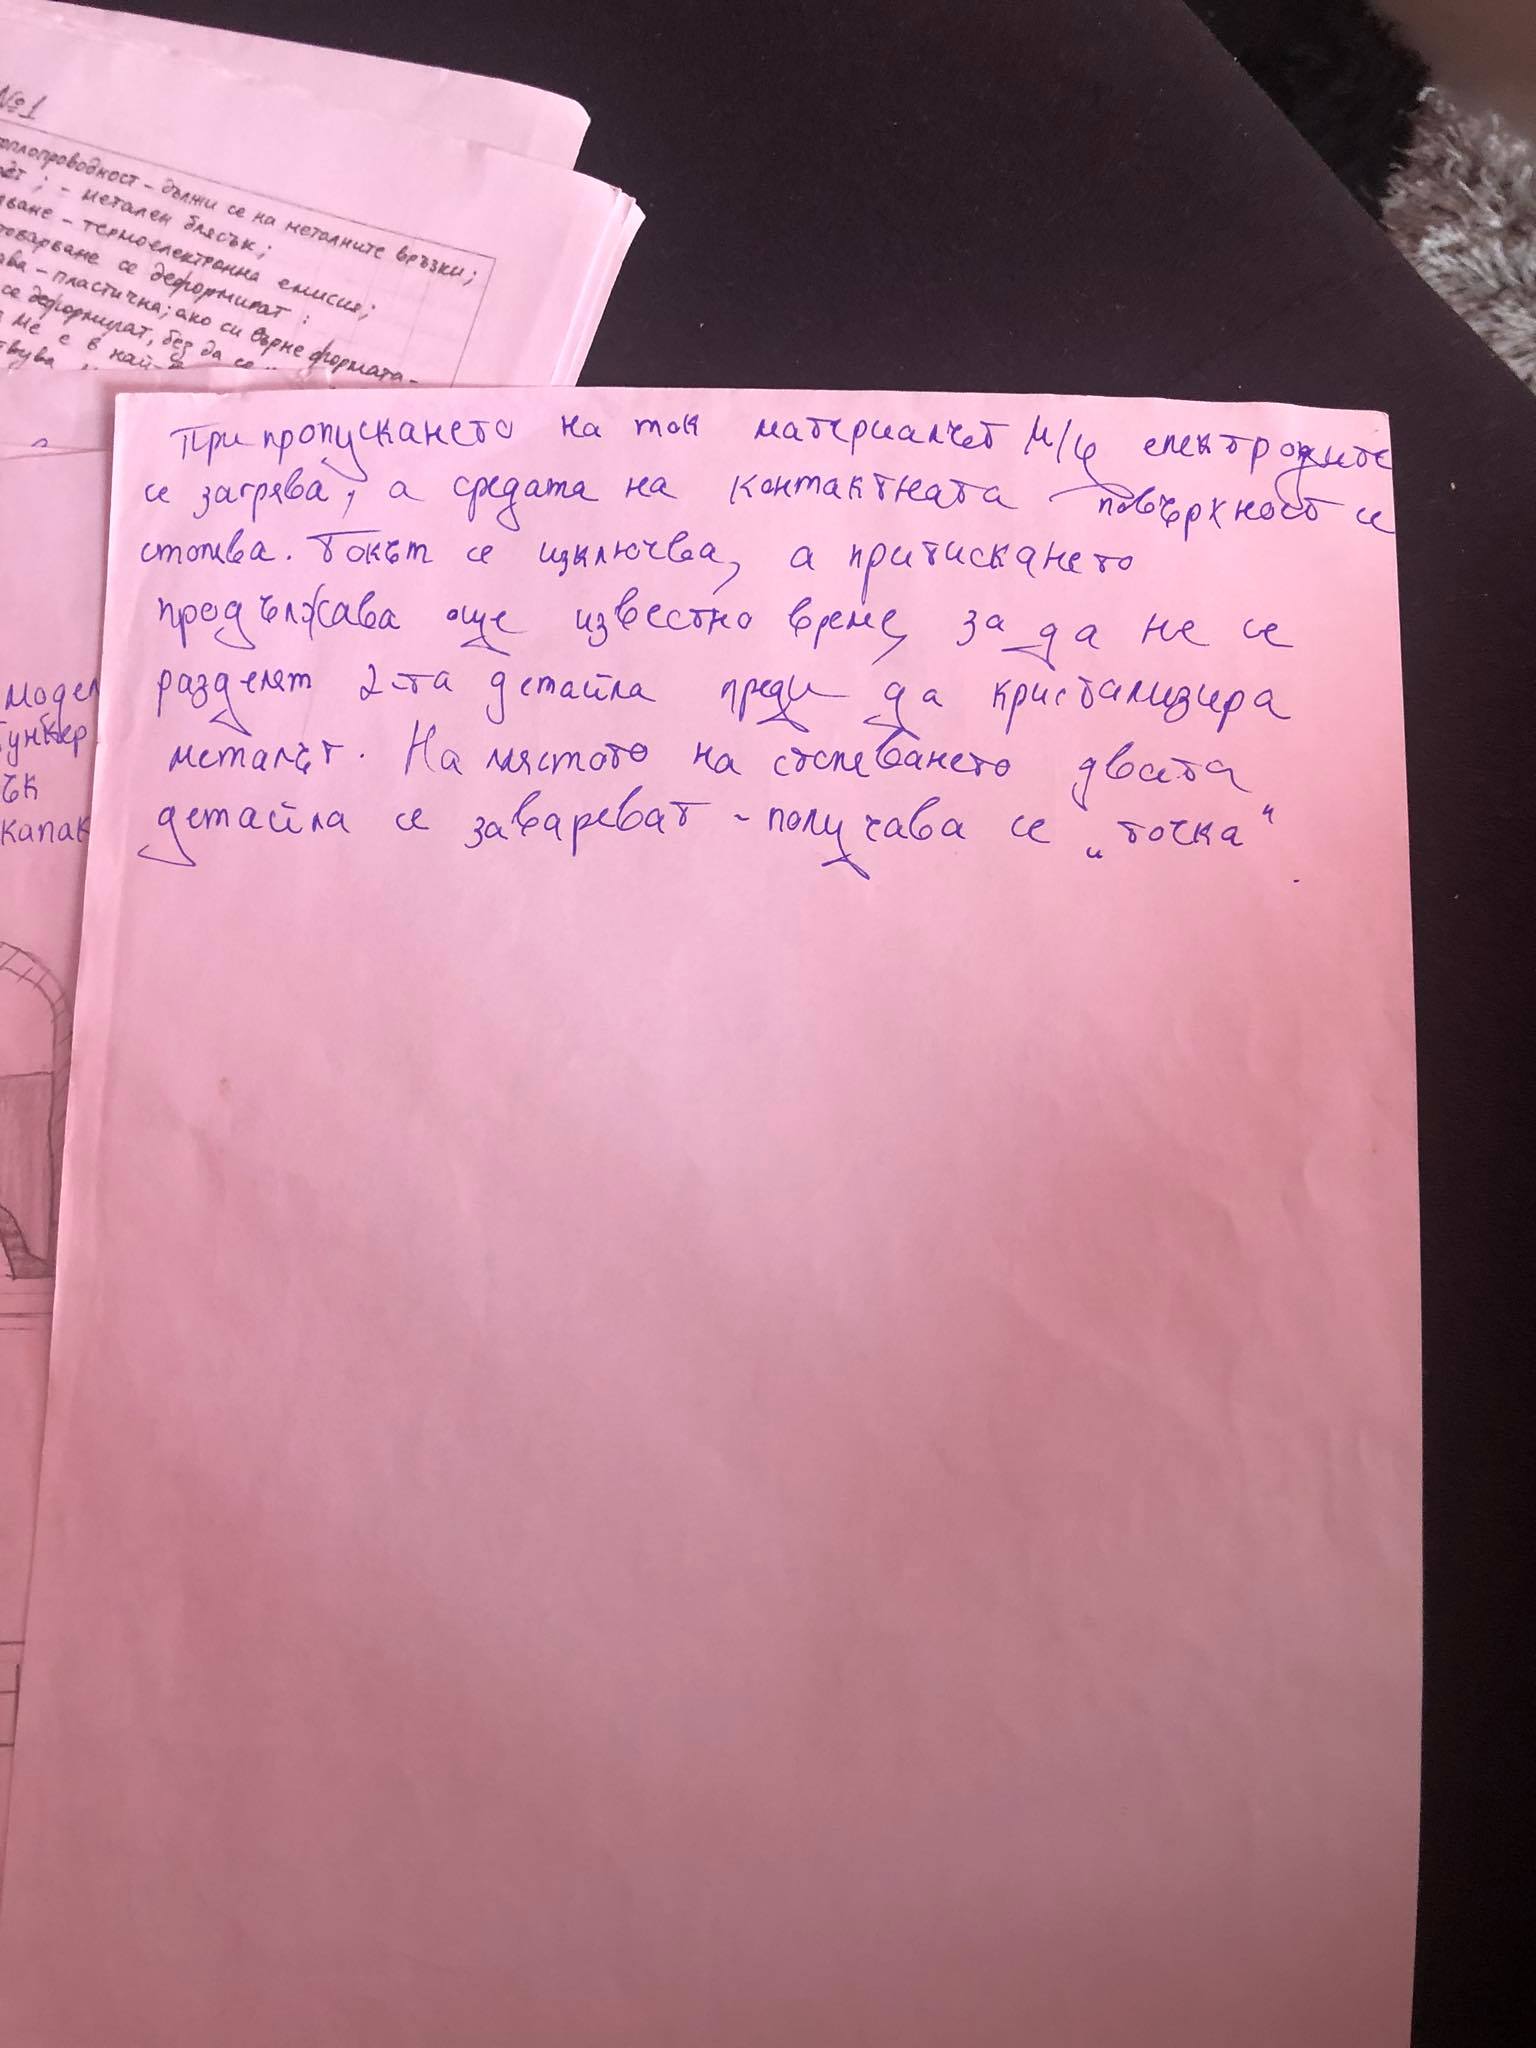 №1
топлопроводност - дължи се на металните връзки;
; - метален блясък;
- термоелектронна емисия;
товарване се деформират :
- пластична; ако си върне формата -
се деформират, без да се
ме е в най-
При пропускането на ток материалът м/у електродите
се загрява, а средата на контактната повърхност се
стопява. Токът се изключва, а притискането
продължава още известно време, за да не се
разделят 2-та детайла преди да кристализира
металът. На мястото на стопяването двата
детайла се заваряват - получава се „точка“.
Модел
ункер
ък
капак